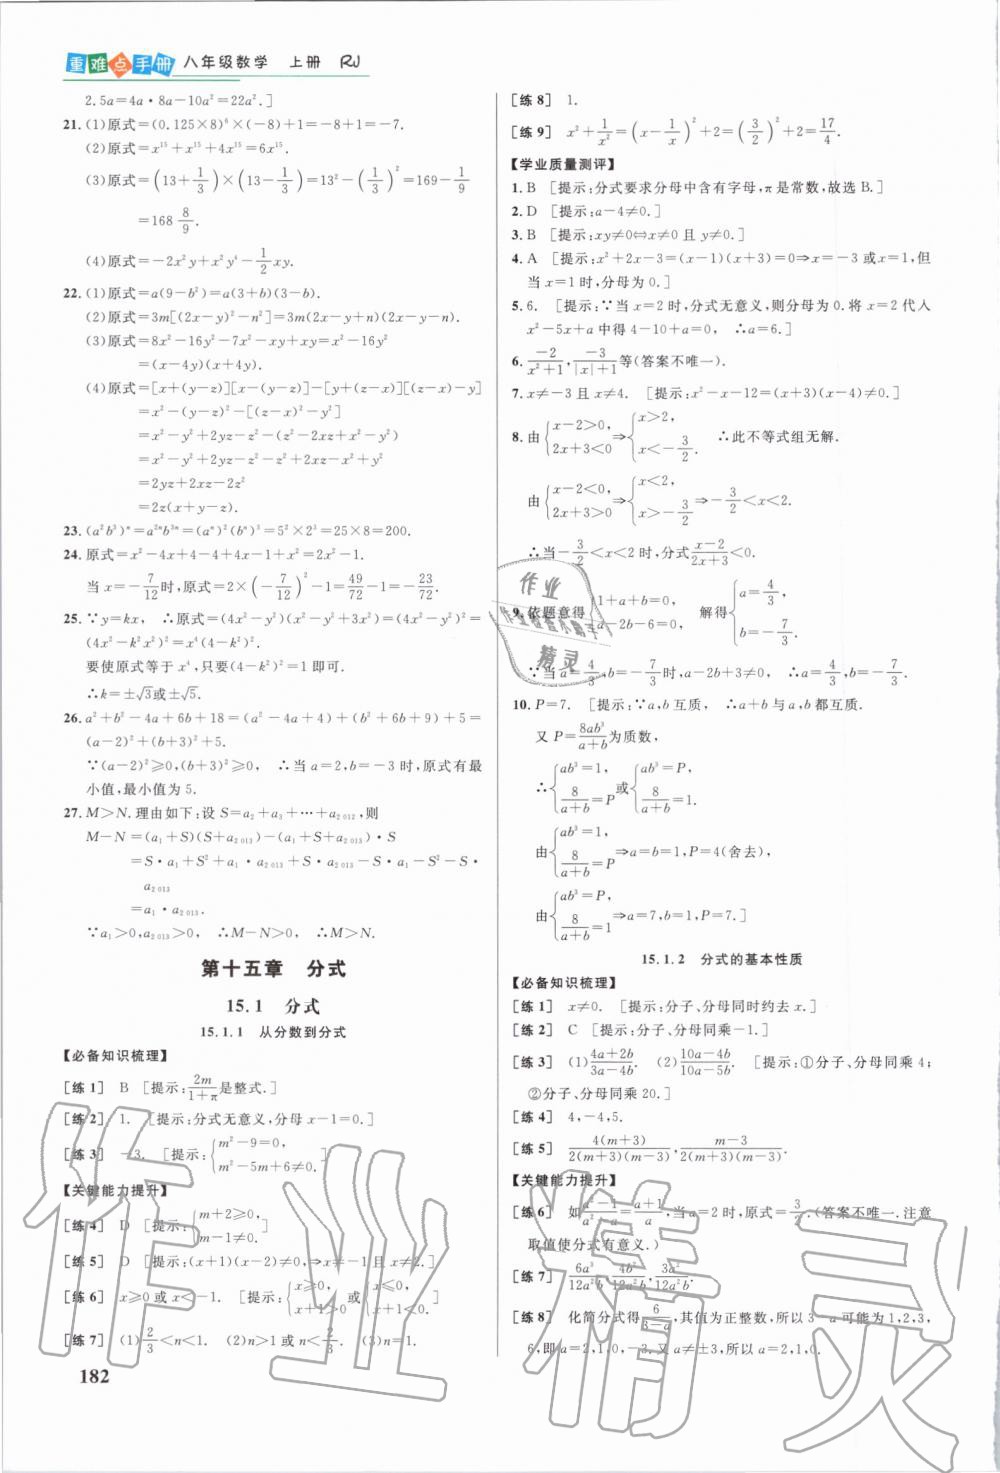 重难点手册 八年级数学 上册 RJ
2.5a=4a·8a-10a²=22a².]
21.(1)原式=(0.125×8)⁶×(-8)+1=-8+1=-7.
(2)原式=x¹⁵+x¹⁵+4x¹⁵=6x¹⁵.
(3)原式=(13+1/3)×(13-1/3)=13²-(1/3)²=169-1/9
=168 8/9.
(4)原式=-2x²y+x²y⁴-1/2xy.
22.(1)原式=a(9-b²)=a(3+b)(3-b).
(2)原式=3m[(2x-y)²-n²]=3m(2x-y+n)(2x-y-n).
(3)原式=8x²-16y²-7x²-xy+xy=x²-16y²
=(x-4y)(x+4y).
(4)原式=[x+(y-z)][x-(y-z)]-[y+(z-x)][(z-x)-y]
=x²-(y-z)²-[(z-x)²-y²]
=x²-y²+2yz-z²-(z²-2xz+x²-y²)
=x²-y²+2yz-z²-z²+2xz-x²+y²
=2yz+2xz-2z²
=2z(x+y-z).
23.(a²b³)ⁿ=a²ⁿb³ⁿ=(aⁿ)²(bⁿ)³=5²×2³=25×8=200.
24.原式=x²-4x+4-4+4x-1+x²=2x²-1.
当x=-7/12时,原式=2×(-7/12)²-1=49/72-1=-23/72.
25.∵y=kx, ∴原式=(4x²-y²)(x²-y²+3x²)=(4x²-y²)²=
(4x²-k²x²)²=x⁴(4-k²)².
要使原式等于x⁴,只要(4-k²)²=1即可.
∴k=±√3或±√5.
26.a²+b²-4a+6b+18=(a²-4a+4)+(b²+6b+9)+5=
(a-2)²+(b+3)²+5.
∵(a-2)²≥0,(b+3)²≥0, ∴当a=2,b=-3时,原式有最
小值,最小值为5.
27.M>N.理由如下:设S=a₂+a₃+⋯+a₂₀₁₂,则
M-N=(a₁+S)(S+a₂₀₁₃)-(a₁+S+a₂₀₁₃)·S
=S·a₁+S²+a₁·a₂₀₁₃+S·a₂₀₁₃-S·a₁-S²-S·
a₂₀₁₃
=a₁·a₂₀₁₃.
∵a₁>0,a₂₀₁₃>0, ∴M-N>0, ∴M>N.
第十五章 分式
15.1 分式
15.1.1 从分数到分式
【必备知识梳理】
[练1] B [提示:2m/(1+π)是整式.]
[练2] 1. [提示:分式无意义,分母x-1=0.]
[练3] -3. [提示:{m²-9=0,
m²-5m+6≠0.]
【关键能力提升】
[练4] D [提示:{m+2≥0,
m-1≠0.]
[练5] D [提示:(x+1)(x-2)≠0⇒x≠-1且x≠2.]
[练6] x≥0或x<-1. [提示:{x≥0,
x+1>0或{x≤0,
x+1<0.]
[练7] (1)2/3<n<1. (2)n>1或n<2/3.
182
[练8] 1.
[练9] x²+1/x²=(x-1/x)²+2=(3/2)²+2=17/4.
【学业质量测评】
1.B [提示:分式要求分母中含有字母,π是常数,故选B.]
2.D [提示:a-4≠0.]
3.B [提示:xy≠0⇔x≠0且y≠0.]
4.A [提示:x²+2x-3=(x-1)(x+3)=0⇒x=-3或x=1,但
当x=1时,分母为0.]
5.6. [提示:∵当x=2时,分式无意义,则分母为0.将x=2代人
x²-5x+a中得4-10+a=0, ∴a=6.]
6.-2/(x²+1),-3/(|x|+1)等(答案不唯一).
7.x≠-3且x≠4. [提示:x²-x-12=(x+3)(x-4)≠0.]
8.由{x-2>0,
2x+3<0⇒{x>2,
x<-3/2. ∴此不等式组无解.
由{x-2<0,
2x+3>0⇒{x<2,
x>-3/2⇒-3/2<x<2.
∴当-3/2<x<2时,分式(x-2)/(2x+3)<0.
9.依题意得{1+a+b=0,
a-2b-6=0. 解得{a=4/3,
b=-7/3.
∴当a=4/3,b=-7/3时,a-2b+3≠0, ∴a=4/3,b=-7/3.
10.P=7. [提示:∵a,b互质, ∴a+b与a,b都互质.
又P=8ab³/(a+b)为质数,
∴{ab³=1,
8/(a+b)=P或{ab³=P,
8/(a+b)=1.
由{ab³=1,
8/(a+b)=P⇒a=b=1,P=4(舍去),
由{ab³=P,
8/(a+b)=1⇒a=7,b=1,P=7.]
15.1.2 分式的基本性质
【必备知识梳理】
[练1] x≠0. [提示:分子、分母同时约去x.]
[练2] C [提示:分子、分母同乘-1.]
[练3] (1)(4a+2b)/(3a-4b). (2)(10a-4b)/(10a-5b). [提示:①分子、分母同乘4;
②分子、分母同乘20.]
[练4] 4,-4,5.
[练5] 4(m+3)/(2(m+3)(m-3)),(m-3)/(2(m+3)(m-3)).
【关键能力提升】
[练6] 如(a²-1)/(a²-a)=(a+1)/a,当a=2时,原式=3/2.(答案不唯一.注意
取值使分式有意义.)
[练7] 6a³/12a²b,4b²/12a²b,3a²/12a²b.
[练8] 化简分式得6/(3-a),其值为正整数,所以3-a可能为1,2,3,
6,即a=2,1,0,-3.又a≠±3,所以a=2,1,0.
作业精灵
作业
精灵